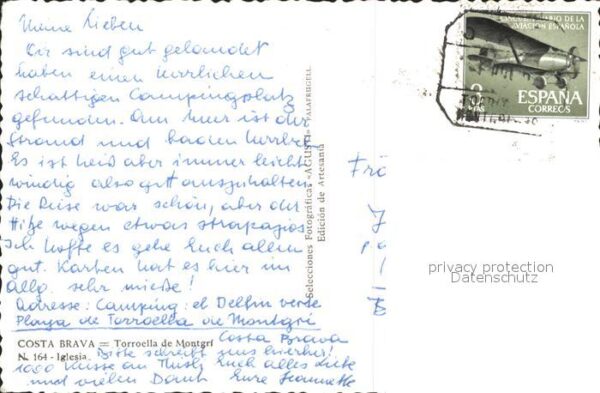 Meine Lieben
Wir sind gut gelandet
haben einen herrlichen
schattigen Campingplatz
gefunden. Am Meer ist der
Strand und baden herrlich.
Es ist heiß aber immer leicht
windig also gut auszuhalten.
Die Reise war schön, aber der
Hitze wegen etwas strapaziös.
Ich hoffe es gehe Euch allen
gut. Karten hat es hier im
allg. sehr miese!
Adresse: Camping: el Delfin verde
Playa de Torroella de Montgri
Costa Brava
COSTA BRAVA = Torroella de Montgrí
N. 164 - Iglesia.
Bitte schreibt uns hierher!
1000 Küsse an Euch alles Liebe
und vielen Dank Eure Jeannette
Selecciones Fotográficas «AGUSTI» PALAFRUGELL
Edición de Artesanía
CINCUENTENARIO DE LA
AVIACION ESPAÑOLA
3
PTAS
ESPAÑA
CORREOS
Frö
privacy protection
Datenschutz